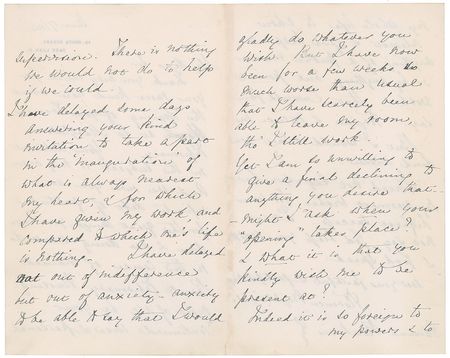 supervision. There is nothing
we would not do to help
if we could
I have delayed some days
answering your kind
invitation to take a part
in the "inauguration" of
what is always nearest
my heart, & for which
I have given my work, and
compared to which one's life
is nothing. I have delayed
not out of indifference
but out of anxiety – anxiety
to be able to say that I would
gladly do whatever you
wish. But I have now
been for a few weeks so
much worse than usual
that I have scarcely been
able to leave my room,
tho' I still work.
Yet I am so unwilling to
give a final declining to
anything you desire that –
might I ask when your
"opening" takes place?
& what it is that you
kindly wish me to be
present at?
Indeed it is so foreign to
my powers & to